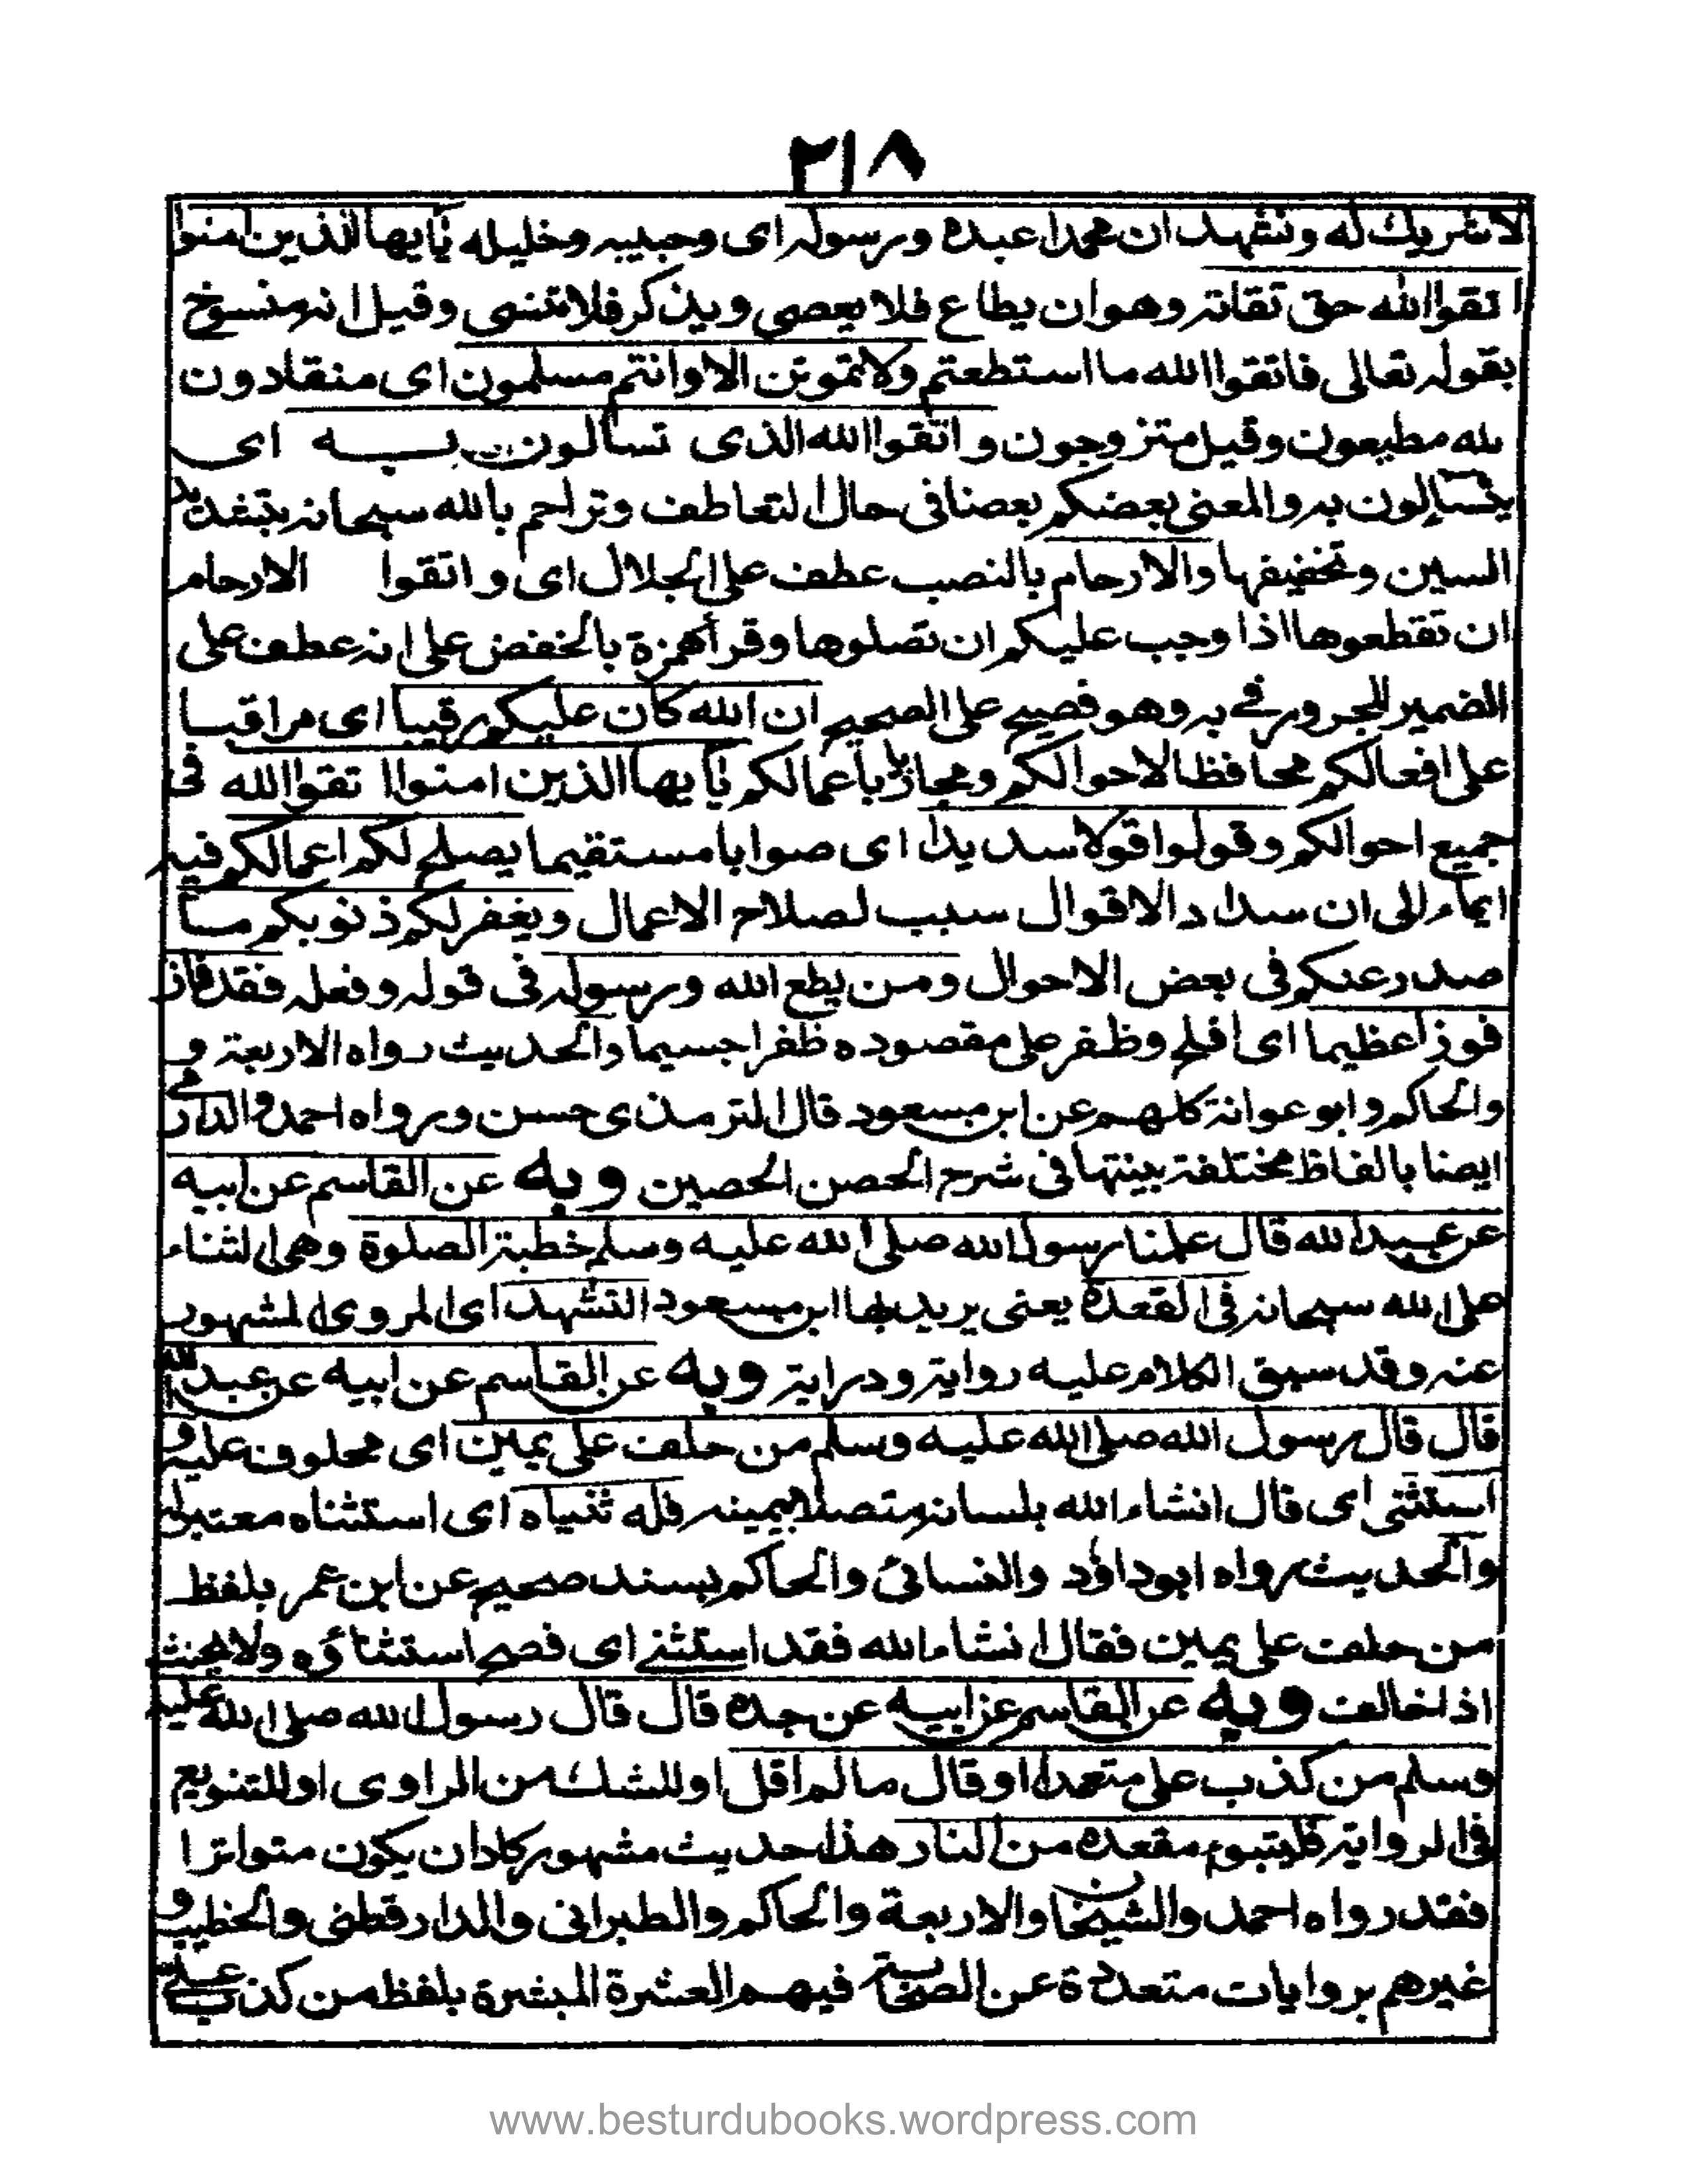 ٢١٨
لا شريك له ونشهد ان محمدا عبده ورسوله اى وحبيبه وخليله يٰايها الذين امنوا
اتقوا الله حق تقاته وهو ان يطاع فلا يعصى ويذكر فلا تنسى وقيل انه منسوخ
بقوله تعالى فاتقوا الله ما استطعتم ولا تموتن الا وانتم مسلمون اى منقادون
لله مطيعون وقيل متزوجون و اتقوا الله الذى تسآلون به اى
يتسآلون به والمعنى بعضكم بعضا فى حال التعاطف وتراحم بالله سبحانه بتشديد
السين وتخفيفها والارحام بالنصب عطف على الجلال اى و اتقوا الارحام
ان تقطعوها اذا وجب عليكم ان تصلوها وقرأ همزة بالخفض على انه عطف على
الضمير المجرور فى به وهو فصيح على الصحيح ان الله كان عليكم رقيبا اى مراقبا
على افعالكم محافظا لاحوالكم ومجازيا باعمالكم يٰايها الذين امنوا اتقوا الله فى
جميع احوالكم وقولوا قولا سديدا اى صوابا مستقيما يصلح لكم اعمالكم فيه
ايماء الى ان سداد الاقوال سبب لصلاح الاعمال ويغفر لكم ذنوبكم ما
صدر عنكم فى بعض الاحوال ومن يطع الله ورسوله فى قوله وفعله فقد فاز
فوزا عظيما اى افلح وظفر على مقصوده ظفرا جسيما والحديث رواه الاربعة و
والحاكم وابو عوانة كلهم عن ابن مسعود قال الترمذى حسن ورواه احمد والدارمى
ايضا بالفاظ مختلفة بينتها فى شرح الحصن الحصين وبه عن القاسم عن ابيه
عن عبد الله قال علمنا رسول الله صلى الله عليه وسلم خطبة الصلوة وهى الثناء
على الله سبحانه فى القعدة يعنى يريد بها ابن مسعود التشهد اى المروى المشهور
عنه وقد سبق الكلام عليه رواية ودراية وبه عن القاسم عن ابيه عن عبد الله
قال قال رسول الله صلى الله عليه وسلم من حلف على يمين اى محلوف عليه و
استثنى اى قال انشاء الله بلسانه متصلا بيمينه فله ثنياه اى استثناه معتبر له
والحديث رواه ابو داؤد والنسائى والحاكم بسند صحيح عن ابن عمر بلفظ
من حلف على يمين فقال انشاء الله فقد استثنى اى فصح استثناؤه ولا يحنث
اذا خالف وبه عن القاسم عن ابيه عن جده قال قال رسول الله صلى الله عليه
وسلم من كذب على متعمدا او قال ما لم اقل او للشك من الراوى او للتنويع
فى الرواية فليتبوء مقعده من النار هذا حديث مشهور كاد ان يكون متواترا
فقد رواه احمد والشيخان والاربعة والحاكم والطبرانى والدارقطنى والخطيب و
غيرهم بروايات متعددة عن الصحابة فيهم العشرة المبشرة بلفظ من كذب على
www.besturdubooks.wordpress.com